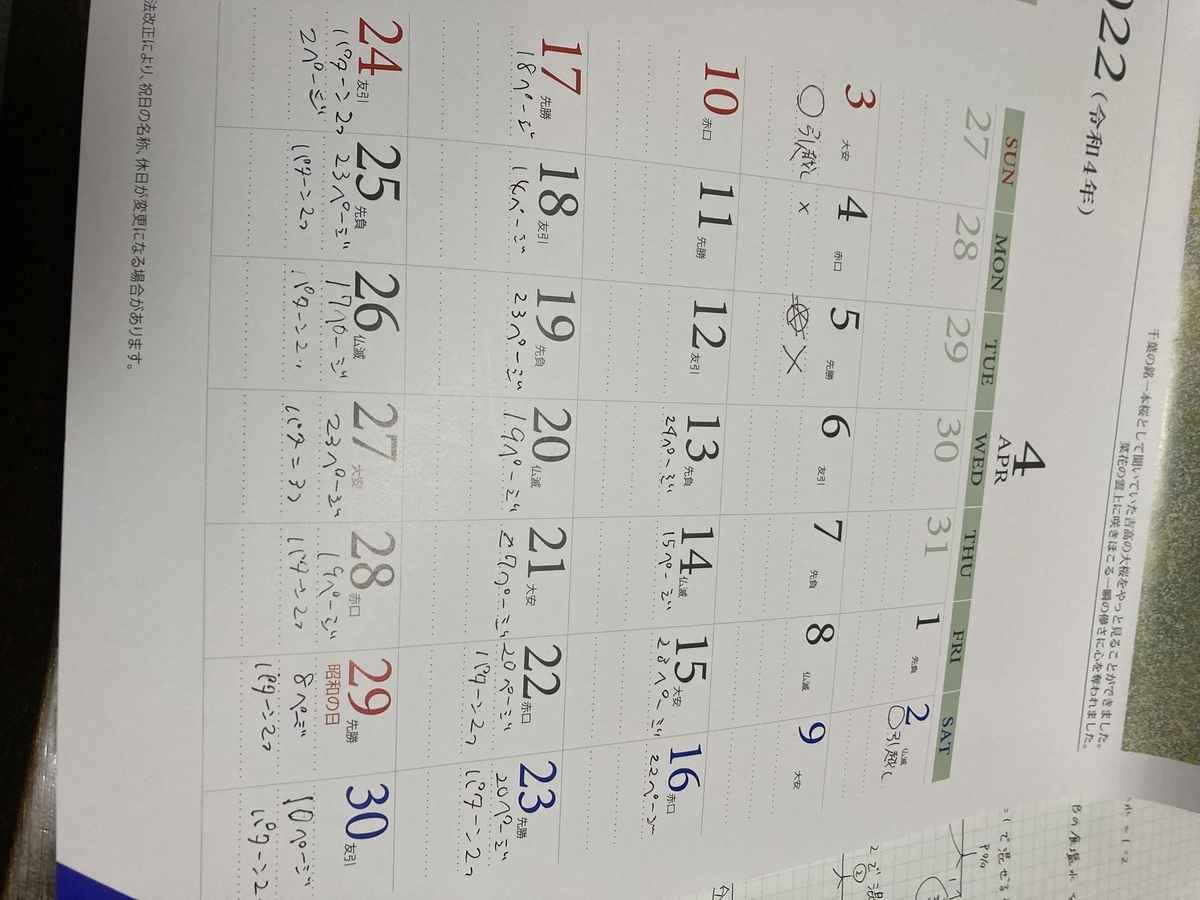 千葉の銘一本桜として聞いていた吉高の大桜をやっと見ることができました。
菜花の雲上に咲きほこる一瞬の儚さに心を奪われました。
022 (令和4年)
4
APR
SUN MON TUE WED THU FRI SAT
27 28 29 30 31 1 先負 2 仏滅
○引越し
3 大安 4 赤口 5 先勝 6 友引 7 先負 8 仏滅 9 大安
○引越し × ×
10 赤口 11 先勝 12 友引 13 先負 14 仏滅 15 大安 16 赤口
24ページ 15ページ 23ページ 22ページ
17 先勝 18 友引 19 先負 20 仏滅 21 大安 22 赤口 23 先勝
18ページ ページ 23ページ 19ページ 27ページ 20ページ 20ページ
パターン2つ パターン2つ
24 友引 25 先負 26 仏滅 27 大安 28 赤口 29 先勝 30 友引
昭和の日
パターン2つ 23ページ 17ページ 23ページ 19ページ 8ページ 10ページ
2ページ パターン2つ パターン2つ パターン3つ パターン2つ パターン2つ パターン2
法改正により、祝日の名称、休日が変更になる場合があります。
の食塩水
で混ぜる
P%
2で混